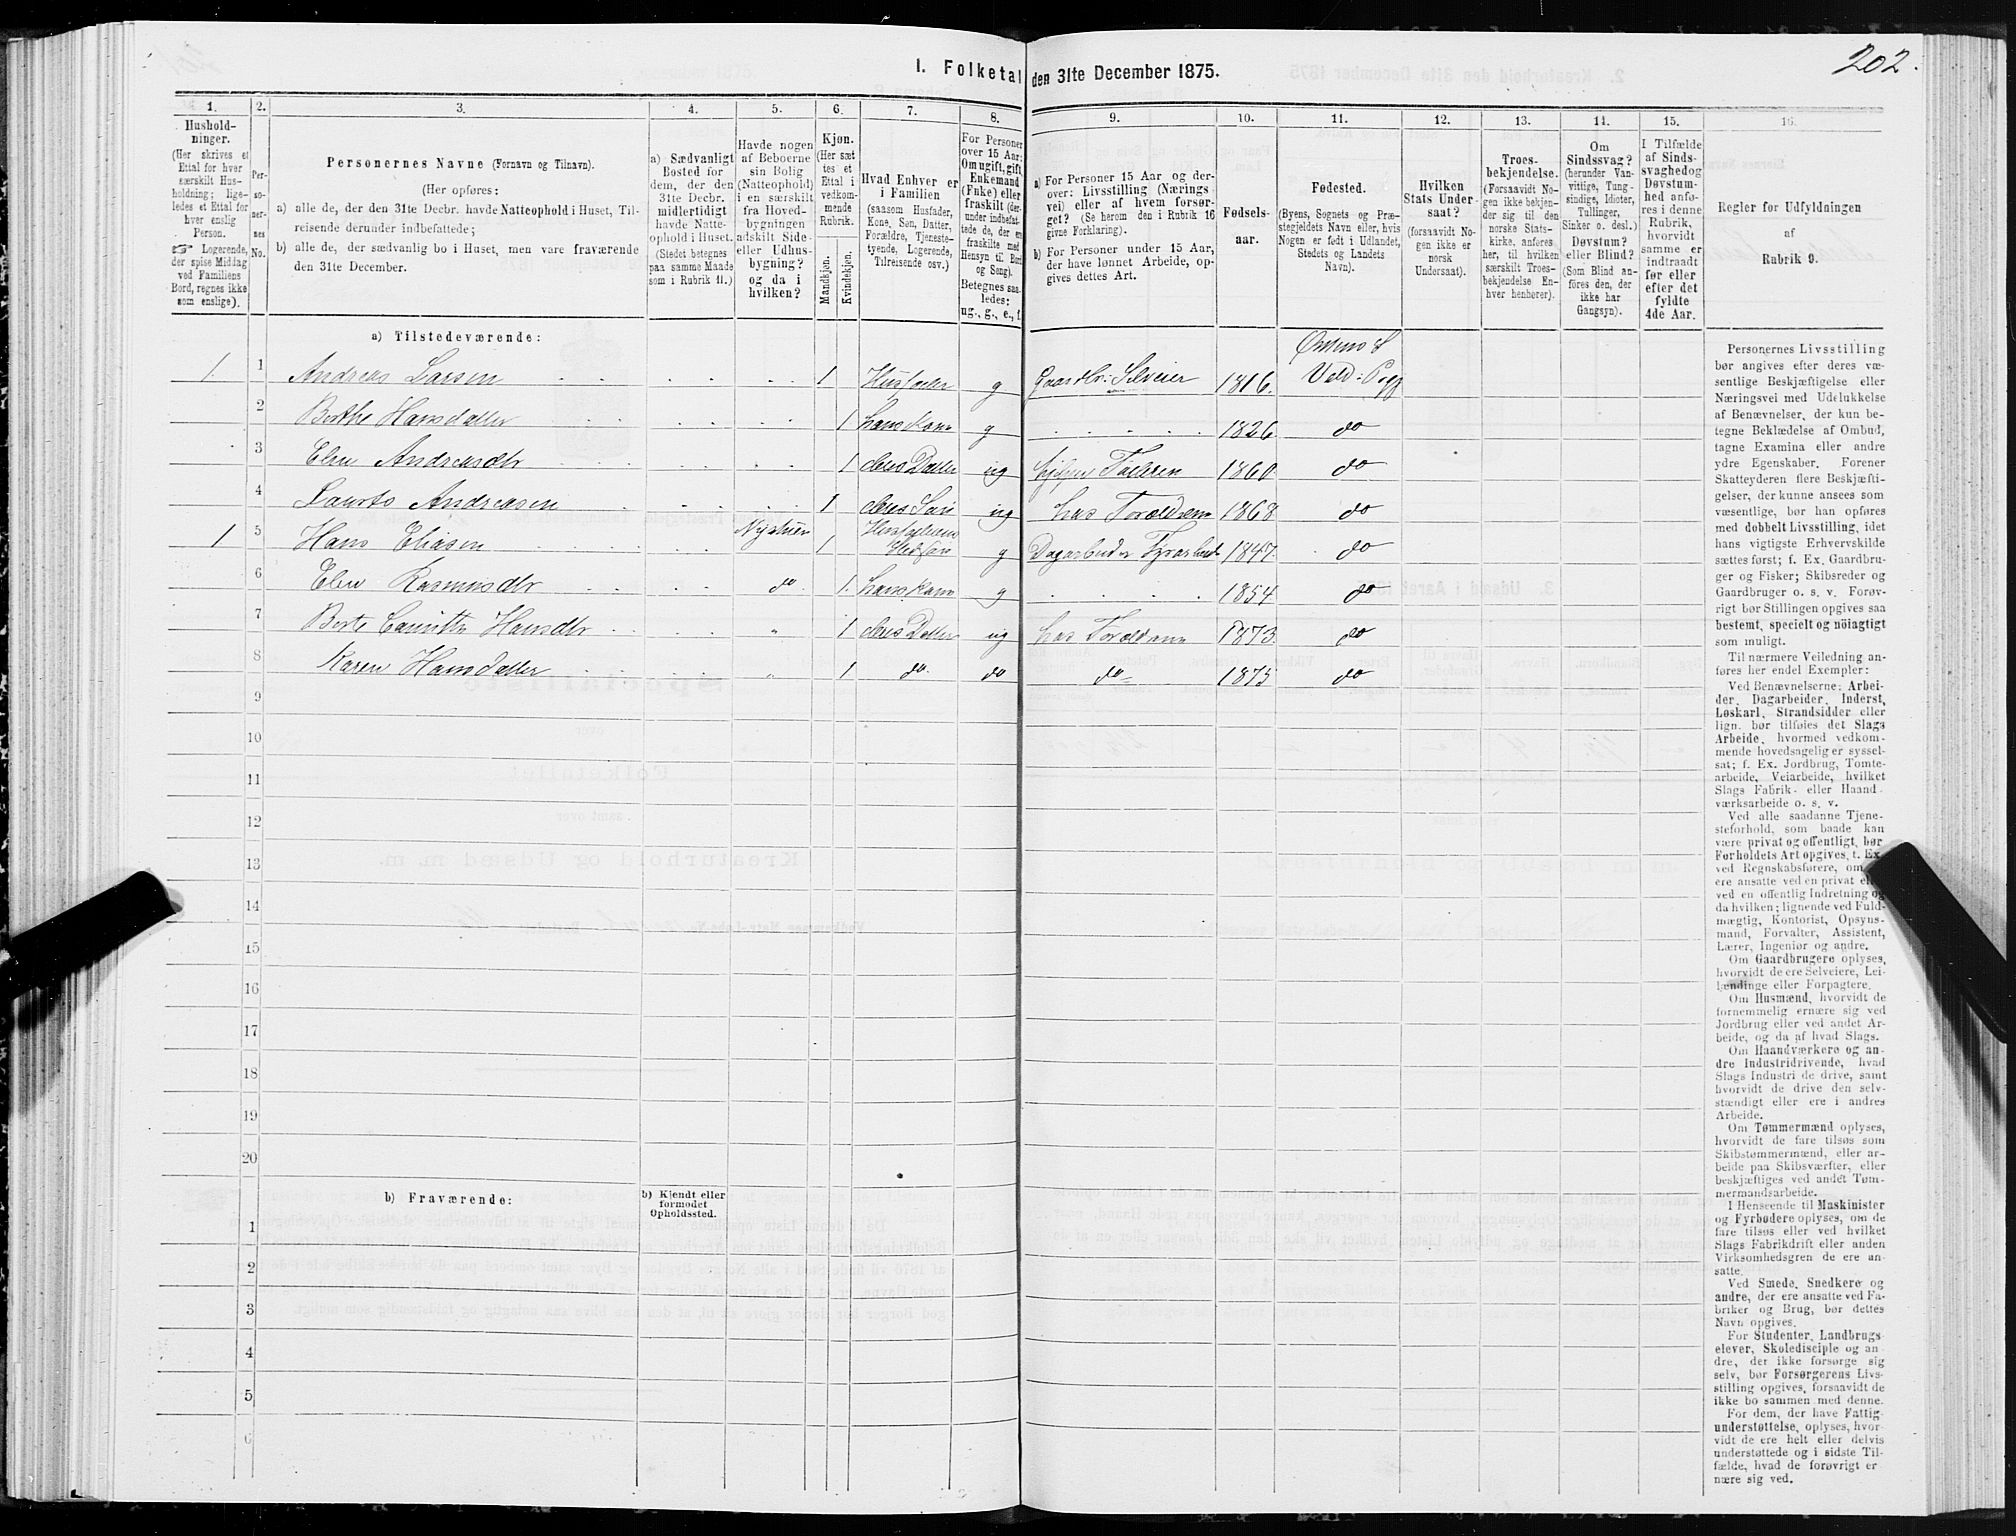 202.
I. Folketal den 31te December 1875.
1. 2. 3. 4. 5. 6. 7. 8. 9. 10. 11. 12. 13. 14. 15. 16.
Hushold-
ninger.
(Her skrives et
Ettal for hver
særskilt Hus-
holdning; lige-
ledes et Ettal for
hver enslig
Person.
☞ Logerende,
der spise Middag
ved Familiens
Bord, regnes ikke
som enslige).
Per-
so-
ner-
nes
No.
Personernes Navne (Fornavn og Tilnavn).
(Her opføres:
a) alle de, der den 31te Decbr. havde Natteophold i Huset, Til-
reisende derunder indbefattede;
b) alle de, der sædvanlig bo i Huset, men vare fraværende
den 31te December.
a) Sædvanligt
Bosted for
dem, der den
31te Decbr.
midlertidigt
havde Natte-
ophold i Huset.
(Stedet betegnes
paa samme Maade
som i Rubrik 11.)
Havde nogen
af Beboerne
sin Bolig
(Natteophold)
i en særskilt
fra Hoved-
bygningen
adskilt Side-
eller Udhus-
bygning?
og da i
hvilken?
Kjøn.
(Her sæt-
tes et
Ettal i
vedkom-
mende
Rubrik.
Mandkjøn.
Kvindekjøn.
Hvad Enhver er
i Familien
(saasom Husfader,
Kone, Søn, Datter,
Forældre, Tjeneste-
tyende, Logerende,
Tilreisende osv.)
For Personer
over 15 Aar:
Om ugift, gift,
Enkemand
(Enke) eller
fraskilt (der-
under indbefat-
tede de, der ere
fraskilte med
Hensyn til Bord
og Seng).
Betegnes saa-
ledes:
ug., g., e., f.
a) For Personer 15 Aar og der-
over: Livsstilling (Nærings-
vei) eller af hvem forsør-
get? (Se herom den i Rubrik 16
givne Forklaring).
b) For Personer under 15 Aar,
der have lønnet Arbeide, op-
gives dettes Art.
Fødsels-
aar.
Fødested.
(Byens, Sognets og Præ-
stegjeldets Navn eller, hvis
Nogen er født i Udlandet,
Stedets og Landets
Navn).
Hvilken
Stats Under-
saat?
(forsaavidt No-
gen ikke er
norsk
Undersaat).
Troes-
bekjendelse.
(Forsaavidt No-
gen ikke bekjen-
der sig til den
norske Stats-
kirke, anføres
her, til hvilken
særskilt Troes-
bekjendelse En-
hver henhører).
Om
Sindssvag?
(herunder Van-
vittige, Tung-
sindige, Idioter,
Tullinger,
Sinker o. desl.)
Døvstum?
eller Blind?
(Som Blind an-
føres den, der
ikke har
Gangsyn).
I Tilfælde
af Sinds-
svaghed og
Døvstum-
hed anfø-
res i denne
Rubrik,
hvorvidt
samme er
indtraadt
før eller
efter det
fyldte
4de Aar.
Regler for Udfyldningen
af
Rubrik 9.
a) Tilstedeværende:
1 1 Andreas Larsen 1 Husfader g Gaardbr: Selveier 1816. Vold: Pgj
2 Berthe Hansdatter 1 hans Kone g 1826 do
3 Elen Andreasdtr 1 deres Datter ug 1860 do
4 Laurits Andreasen 1 deres Søn ug hos Forældrene 1868 do
1 5 Hans Eliasen 1 g Dagarbeider 1847. do
6 Elen Rasmusdtr do 1. hans Kone g 1854 do
7 Berte Hansdtr " 1 deres Datter ug hos Forældrene 1873. do
8 Karen Hansdatter " 1 do. do do 1875 do
9
10
11
12
13
14
15
16
17
18
19
20
b) Fraværende:
b) Kjendt eller
formodet
Opholdssted.
1
2
3
4
5
6
Personernes Livsstilling
bør angives efter deres væ-
sentlige Beskjæftigelse eller
Næringsvei med Udelukkelse
af Benævnelser, der kun be-
tegne Beklædelse af Ombud,
tagne Examina eller andre
ydre Egenskaber. Forener
Skatteyderen flere Beskjæfti-
gelser, der kunne ansees som
væsentlige, bør han opføres
med dobbelt Livsstilling, idet
hans vigtigste Erhvervskilde
sættes først; f. Ex. Gaardbru-
ger og Fisker; Skibsreder og
Gaardbruger o. s. v. Forøv-
rigt bør Stillingen opgives saa
bestemt, specielt og nöiagtigt
som muligt.
Til nærmere Veiledning an-
føres her endel Exempler:
Ved Benævnelserne: Arbei-
der, Dagarbeider, Inderst,
Løskarl, Strandsidder eller
lign. bør tilføies det Slags
Arbeide, hvormed vedkom-
mende hovedsagelig er syssel-
sat; f. Ex. Jordbrug, Tomte-
arbeide, Veiarbeide, hvilket
Slags Fabrik- eller Haand-
værksarbeide o. s. v.
Ved alle saadanne Tjene-
steforhold, som baade kan
være privat og offentligt, bør
Forholdets Art opgives, t. Ex.
ved Regnskabsførere, om de
ere ansatte ved en privat eller
ved en offentlig Indretning og
da hvilken; lignende ved Fuld-
mægtig, Kontorist, Opsyns-
mand, Forvalter, Assistent,
Lærer, Ingeniør og andre.
Om Gaardbrugere oplyses,
hvorvidt de ere Selveiere, Lei-
lændinge eller Forpagtere.
Om Husmænd, hvorvidt de
fornemmelig ernære sig ved
Jordbrug eller ved andet Ar-
beide, og da af hvad Slags.
Om Haandværkere og an-
dre Industridrivende, hvad
Slags Industri de drive, samt
hvorvidt de drive den selv-
stændigt eller ere i andres
Arbeide.
Om Tømmermænd oplyses,
hvorvidt de fare tilsøs som
Skibstømmermænd, eller ar-
beide paa Skibsværfter, eller
beskjæftiges ved andet Tøm-
mermandsarbeide.
I Henseende til Maskinister
og Fyrbødere oplyses, om de
fare tilsøs eller ved hvilket
Slags Fabrikdrift eller anden
Virksomhedsgren de ere an-
satte.
Ved Smede, Snedkere og
andre, der ere ansatte ved Fa-
briker og Brug, bør dettes
Navn opgives.
For Studenter, Landbrugs-
elever, Skoledisciple og an-
dre, der ikke forsørge sig
selv, bør Forsørgerens Livs-
stilling opgives, forsaavidt de
ikke bo sammen med denne.
For dem, der have Fattig-
understøttelse, oplyses, hvor-
vidt de ere helt eller delvis
understøttede og i sidste Til-
fælde, hvad de forøvrigt er-
nære sig ved.